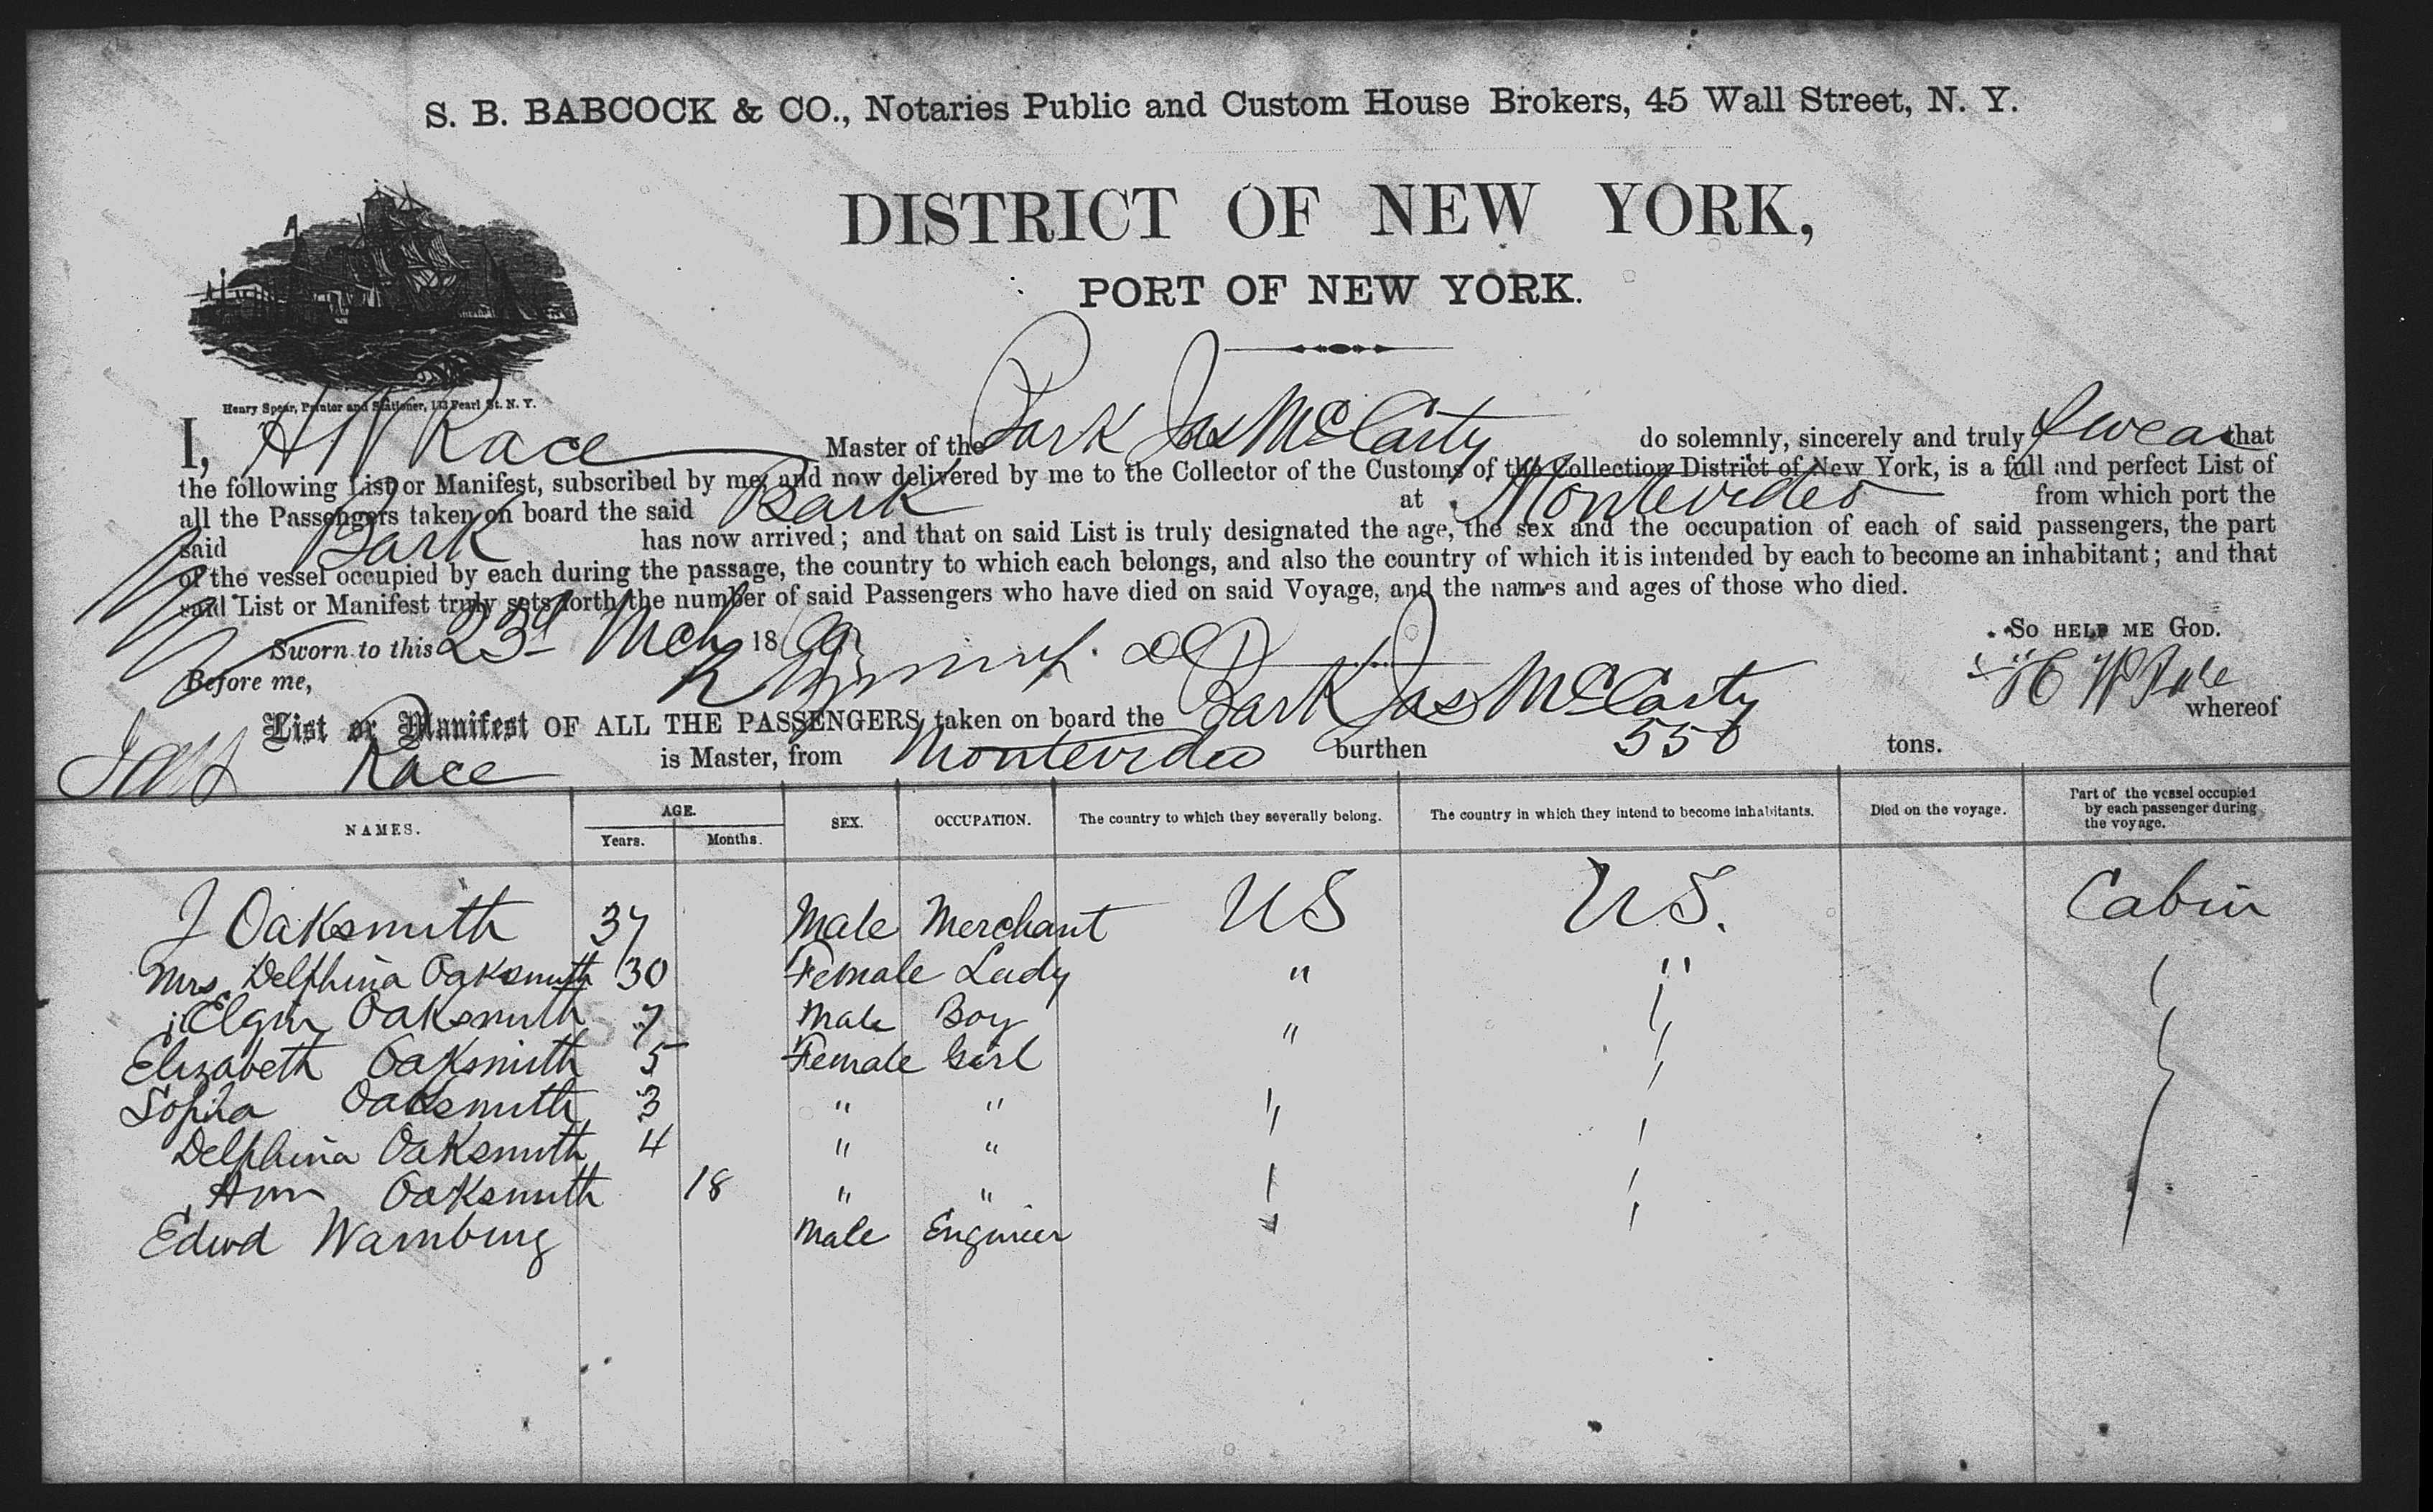 S. B. BABCOCK & CO., Notaries Public and Custom House Brokers, 45 Wall Street, N. Y.
DISTRICT OF NEW YORK,
PORT OF NEW YORK.
Henry Spear, Printer and Stationer, 133 Pearl St. N. Y.
I, H W Race Master of the Bark Jas McCarty do solemnly, sincerely and truly Swear that
the following List or Manifest, subscribed by me, and now delivered by me to the Collector of the Customs of the Collection District of New York, is a full and perfect List of
all the Passengers taken on board the said Bark at Montevideo from which port the
said Bark has now arrived; and that on said List is truly designated the age, the sex and the occupation of each of said passengers, the part
of the vessel occupied by each during the passage, the country to which each belongs, and also the country of which it is intended by each to become an inhabitant; and that
said List or Manifest truly sets forth the number of said Passengers who have died on said Voyage, and the names and ages of those who died.
Sworn to this 23d Mch 1869 So HELP ME GOD.
Before me,
List or Manifest OF ALL THE PASSENGERS taken on board the Bark Jas McCarty whereof
Race is Master, from Montevideo burthen 550 tons.
NAMES. AGE. Years. Months. SEX. OCCUPATION. The country to which they severally belong. The country in which they intend to become inhabitants. Died on the voyage. Part of the vessel occupied by each passenger during the voyage.
J Oaksmith 37 Male Merchant US U.S. Cabin
Mrs. Delphina Oaksmith 30 Female Lady " "
Elgin Oaksmith 7 Male Boy "
Elizabeth Oaksmith 5 Female Girl
Sophia Oaksmith 3 " "
Delphina Oaksmith 4 " "
Ann Oaksmith 18 " "
Edwd Warnburg Male Engineer